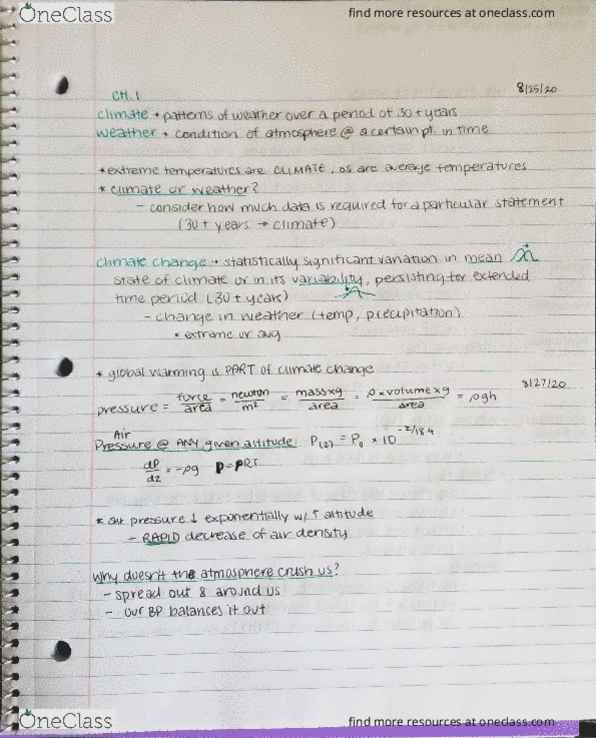 OneClass
find more resources at oneclass.com
CH. 1
8/25/20
climate → patterns of weather over a period of 30+ years
weather → condition of atmosphere @ a certain pt. in time
*extreme temperatures are CLIMATE, as are average temperatures
* climate or weather?
- consider how much data is required for a particular statement
(30+ years → climate)
climate change → statistically significant variation in mean
state of climate or in its variability, persisting for extended
time period (30+ years)
- change in weather (temp, precipitation)
• extreme or avg
* global warming is PART of climate change
8/27/20
pressure = force/area = newton/m² = mass×g/area = ρ×volume×g/area = ρgh
Air
Pressure @ ANY given altitude: P(z) = P₀ × 10^-z/18.4
dP/dz = -ρg P=ρRT
* air pressure ↓ exponentially w/ ↑ altitude
- RAPID decrease of air density
Why doesn't the atmosphere crush us?
- spread out & around us
- our BP balances it out
OneClass
find more resources at oneclass.com